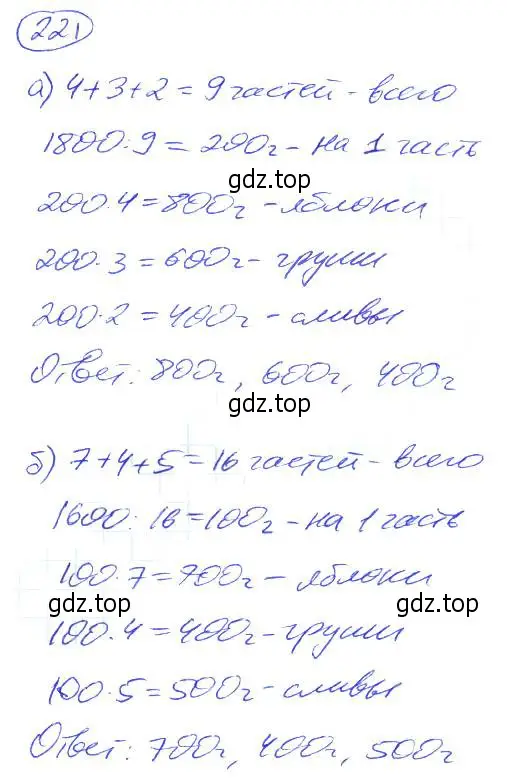 221
а) 4+3+2=9 частей - всего
1800:9=200г - на 1 часть
gdz.top
200·4=800г - яблоки
200·3=600г - груши
200·2=400г - сливы
Ответ: 800г, 600г, 400г
gdz.top
б) 7+4+5=16 частей - всего
1600:16=100г - на 1 часть
100·7=700г - яблоки
gdz.top
gdz.top
100·4=400г - груши
100·5=500г - сливы
Ответ: 700г, 400г, 500г